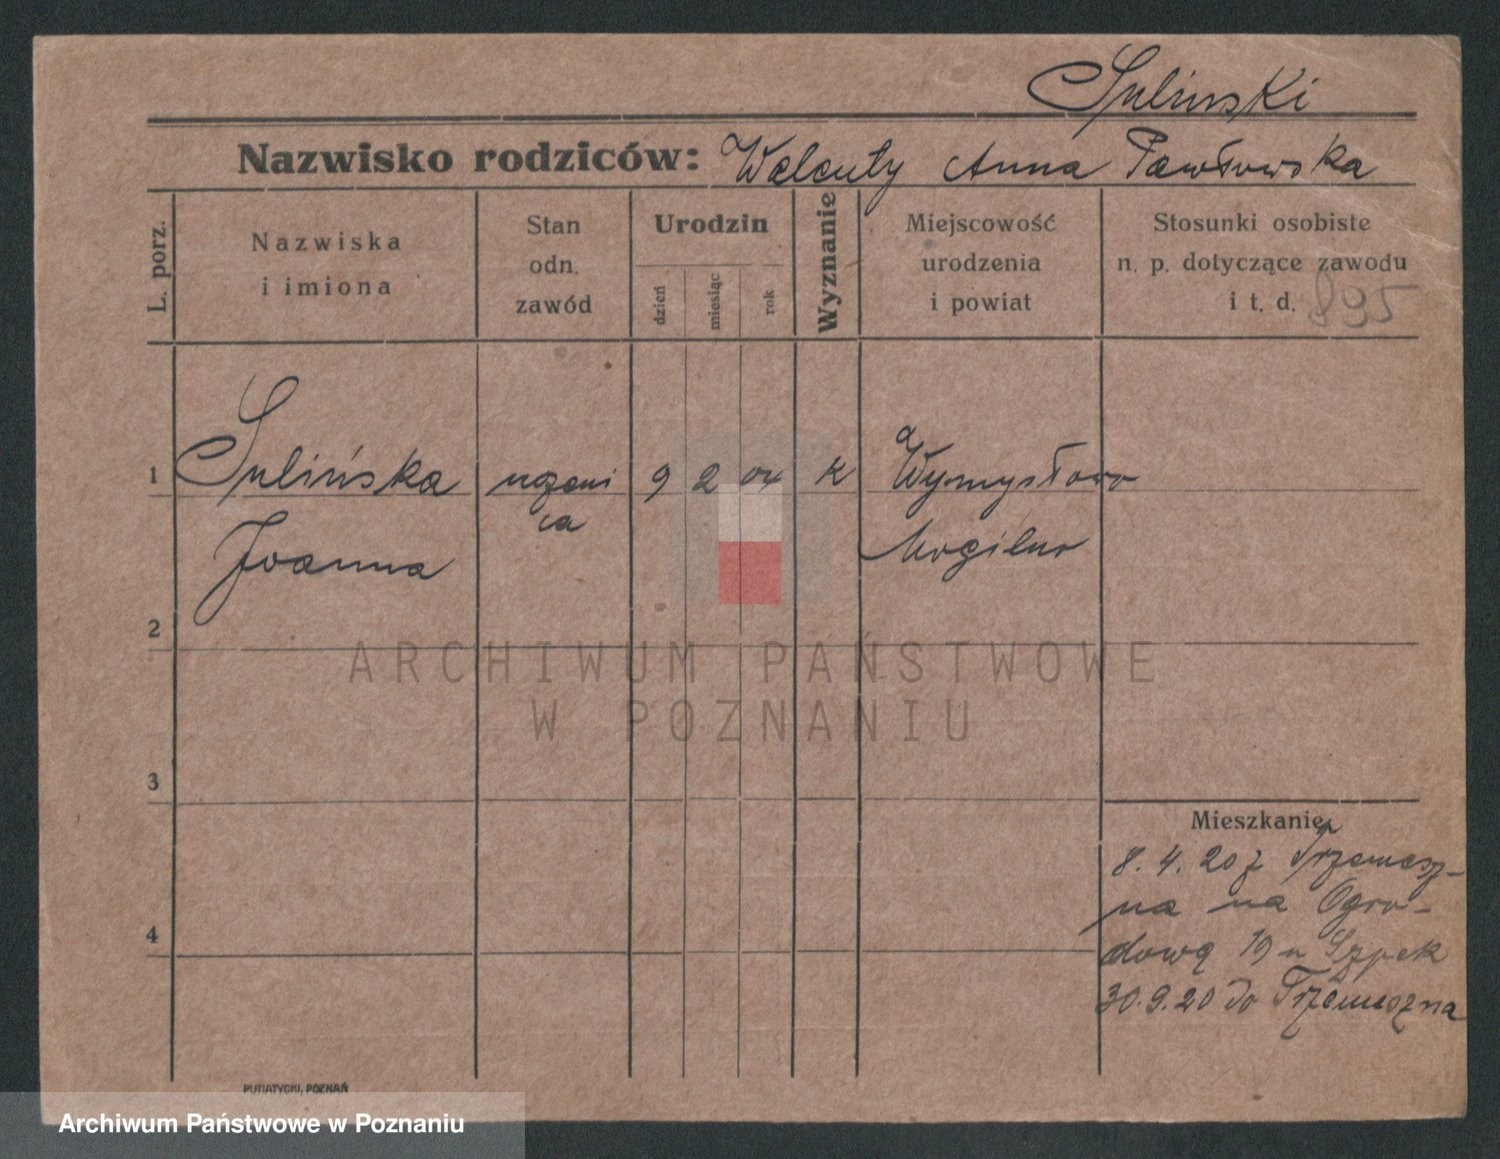 Sulinski
Nazwisko rodziców: Walenty Anna Pawłowska
L. porz.
Nazwiska
i imiona
Stan
odn.
zawód
Urodzin
dzień
miesiąc
rok
Wyznanie
Miejscowość
urodzenia
i powiat
Stosunki osobiste
n. p. dotyczące zawodu
i t. d.
895
1 Sulińska uczeni 9 2 04 k Wymysłowo
ca
Joanna Mogilno
2
3
4
Mieszkanie
8.4.20 z Trzemesz-
na na Ogro-
dową 19 u Szpek
30.9.20 do Trzemeszna
PUTIATYCKI, POZNAŃ
ARCHIWUM PAŃSTWOWE
W POZNANIU
Archiwum Państwowe w Poznaniu